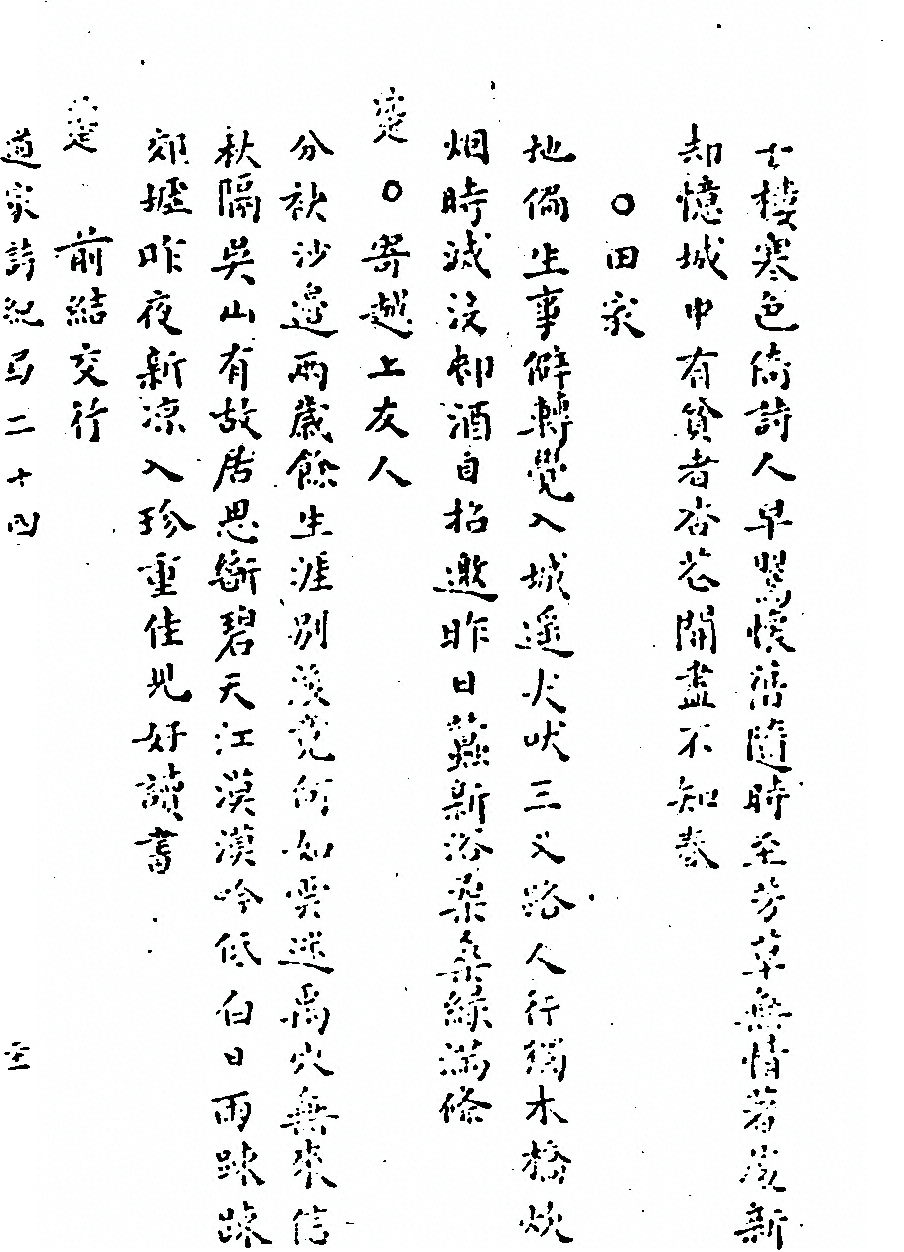 士棲寒色倚詩人早鸎懷舊隨時至芳草無情著處新
却憶城中有貧者杏花開盡不知春
○田家
地偏生事僻轉覺入城遥犬吠三叉路人行獨木橋炊
烟時滅没邨酒自招邀昨日蠶新浴柔桑綠滿條
○寄越上友人
分袂沙邊兩歲餘生涯别後竟何如雲迷禹穴無來信
秋隔吳山有故居思斷碧天江漠漠吟低白日雨踈踈
郊墟昨夜新凉入珍重佳兒好讀書
前結交行
道家詩紀 二十四